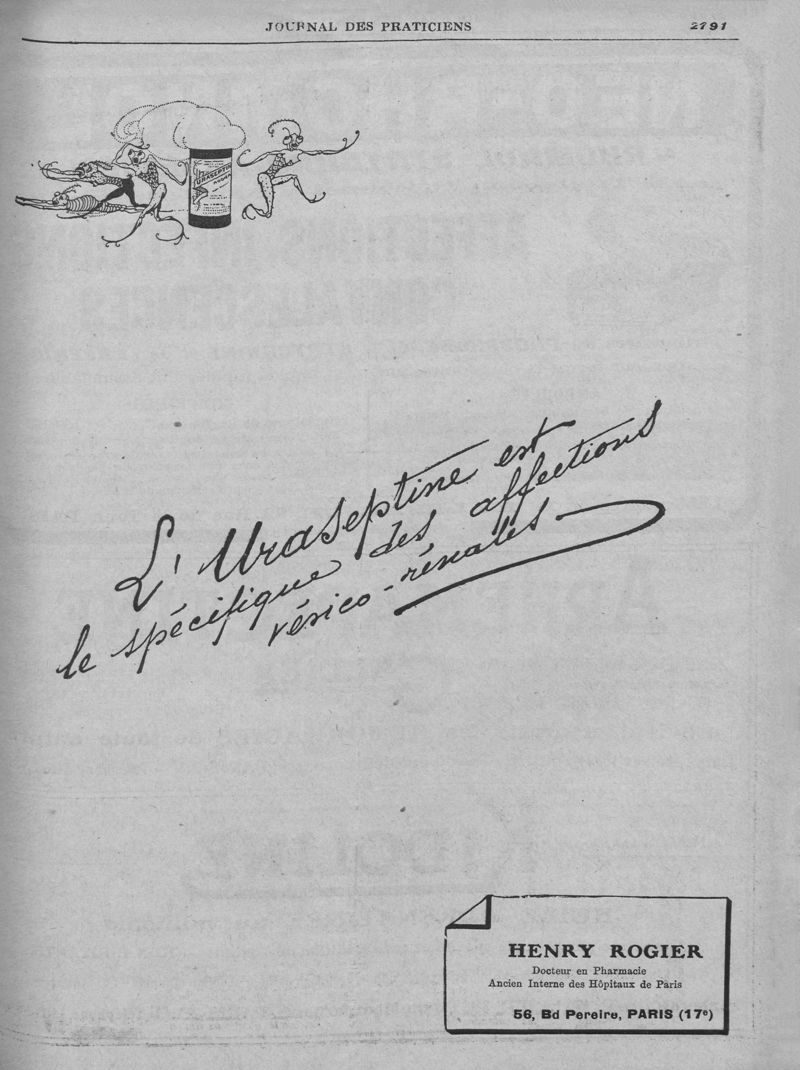 JOURNAL DES PRATICIENS 2791
URASEPTINE
ROGIER
L'Uraseptine est
le spécifique des affections
vésico-rénales
HENRY ROGIER
Docteur en Pharmacie
Ancien Interne des Hôpitaux de Paris
56, Bd Pereire, PARIS (17e)